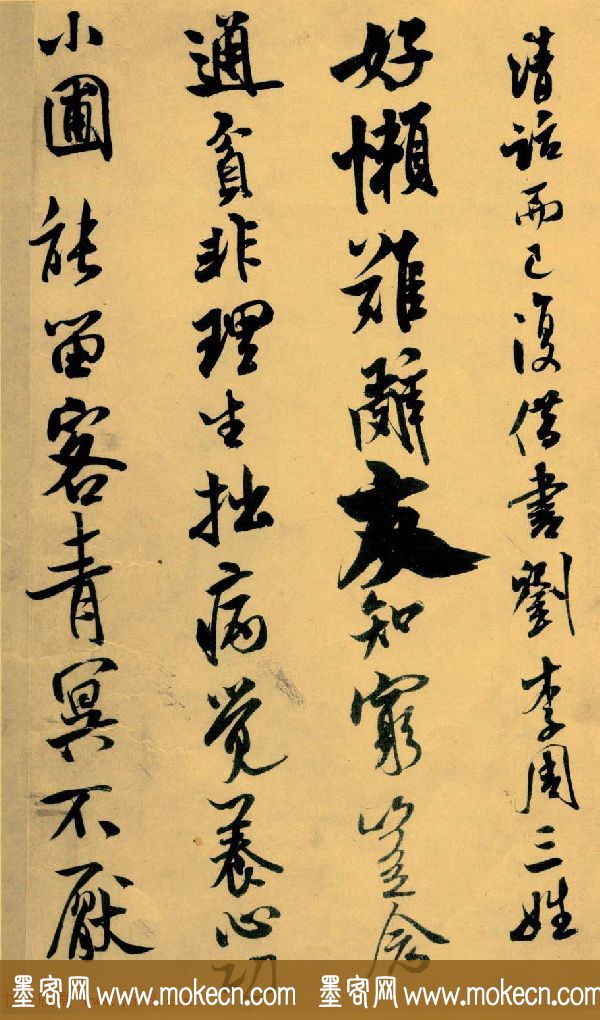 清話而已復借書劉李周三姓
好懶難辭友知窮豈念
通貧非理生拙病覺養心功
小圃能留客青冥不厭
墨客网 www.mokecn.com 墨客网 www.mokecn.com